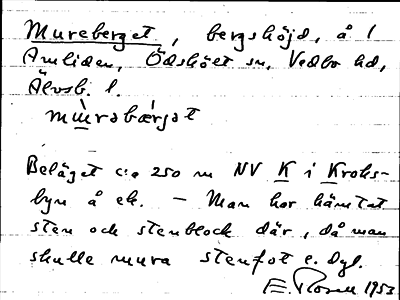 Mureberget, bergshöjd, å 1
Amliden, Ödskölt sn, Vedbo hd,
Älvsb. l.
mùrabǽrjət
Beläget c:a 250 m NV K i Kroks-
byn å ek. – Man har hämtat
sten och stenblock där, då man
skulle mura stenfot e. dyl.
E. Rosell 1953